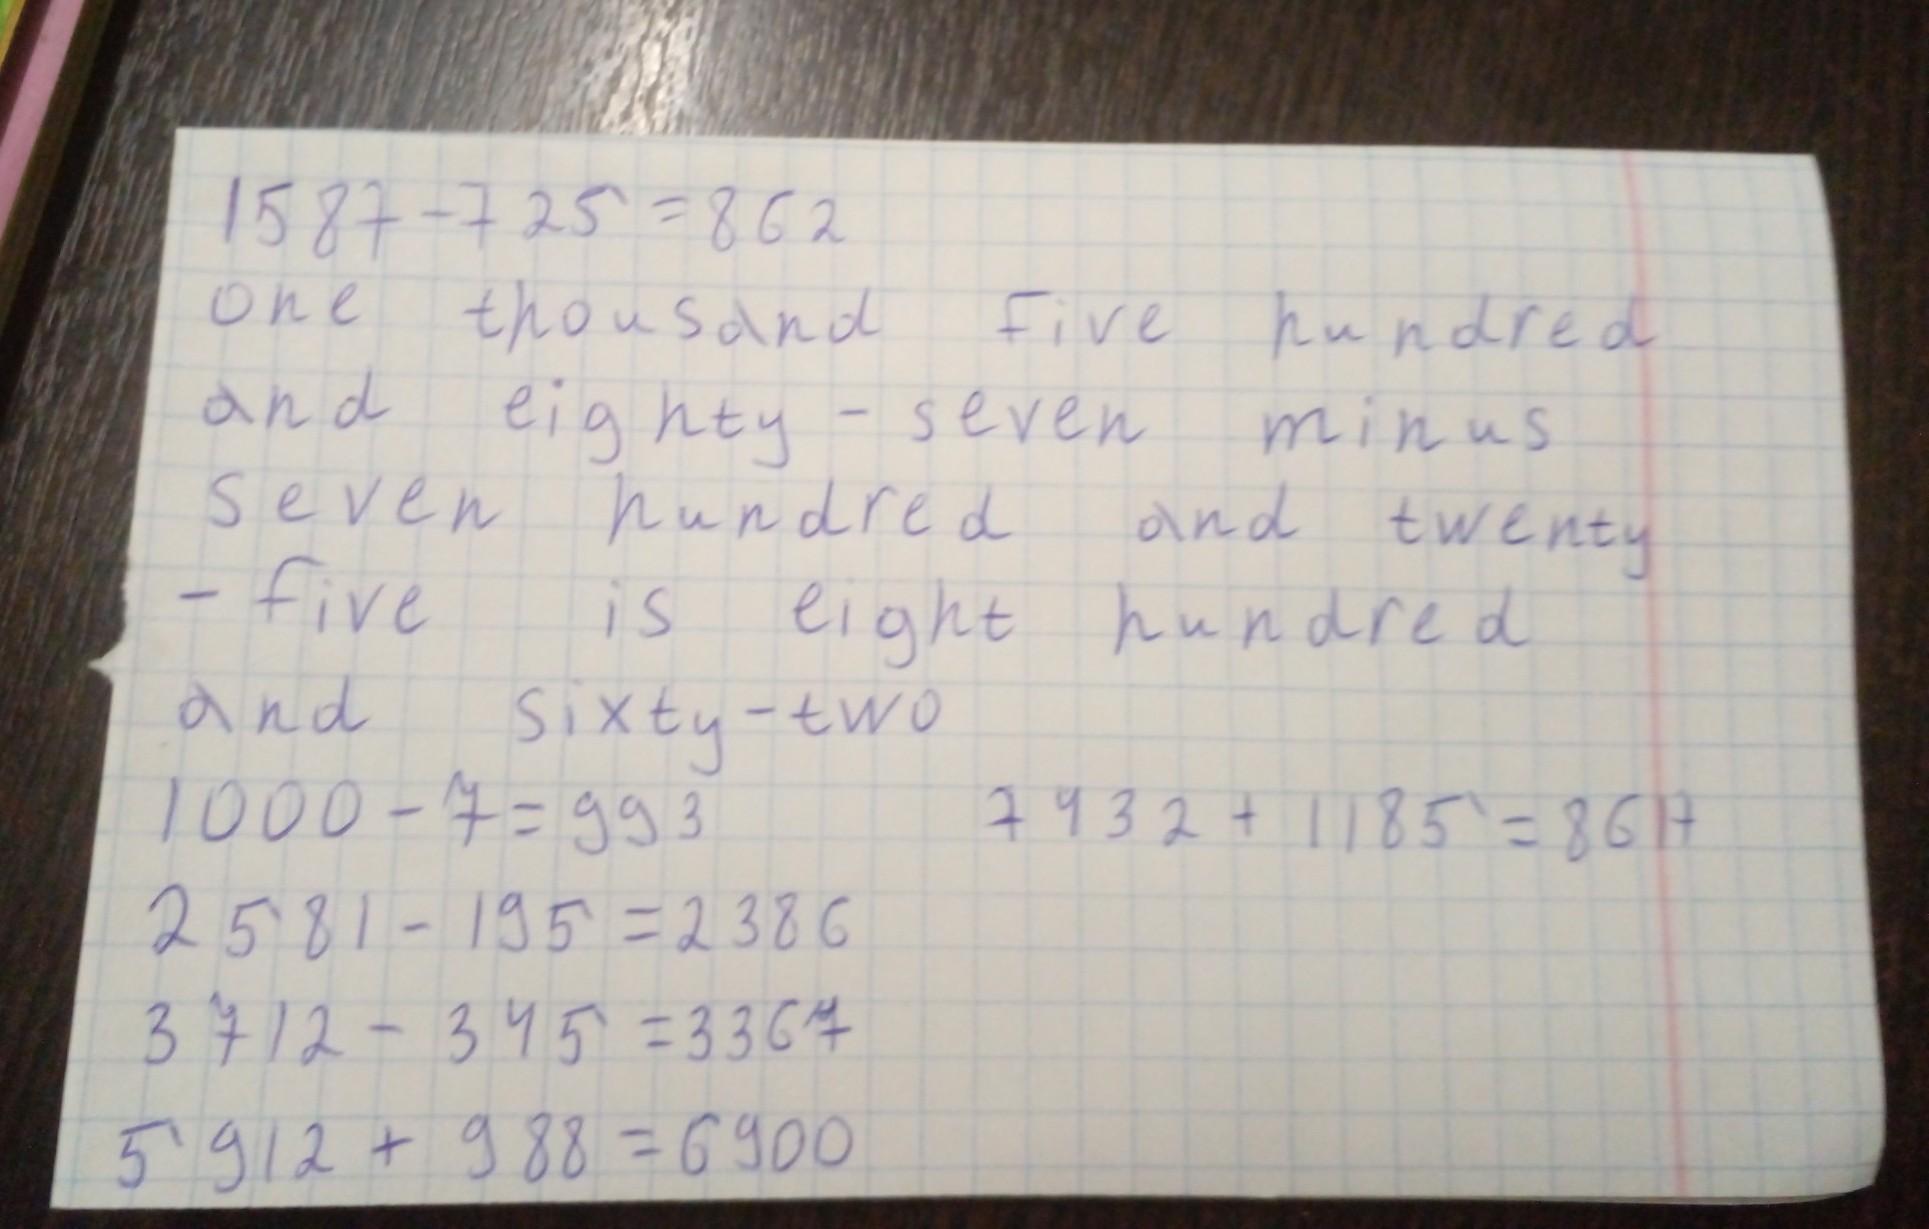 1587-725=862
one thousand five hundred
and eighty-seven minus
seven hundred and twenty
-five is eight hundred
and sixty-two
1000-7=993 7432+1185=8617
2581-195=2386
3712-345=3367
5912+988=6900